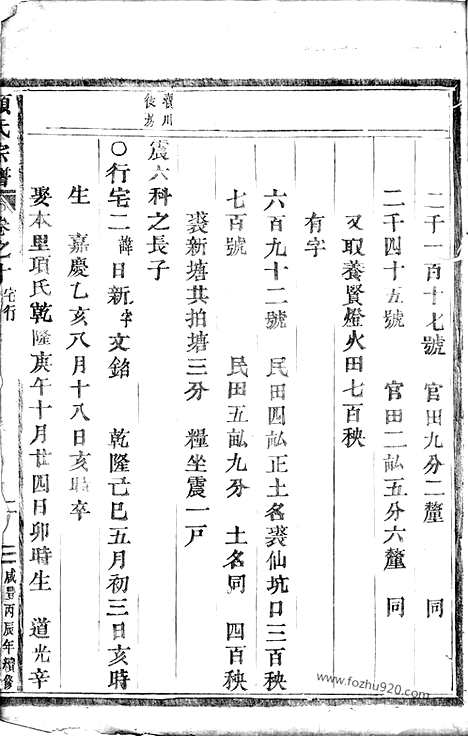 二千一百十七號　官田九分二釐　同
二千四十五號　官田二畝五分六釐　同
又取養賢燈火田七百秧
有字
六百九十二號　民田四畝正土名裘仙坑口三百秧
七百號　民田五畝九分　土名同　四百秧
裘新塘共拍塘三分　糧坐震一戸
震六科之長子
○行宅二諱日新字文銘　乾隆己巳五月初三日亥時
生　嘉慶乙亥八月十八日亥時卒
娶本里項氏乾隆庚午十月廿四日卯時生　道光辛
項氏宗譜　卷之十　宅行
咸豐丙辰年續修
www.fozhu920.com